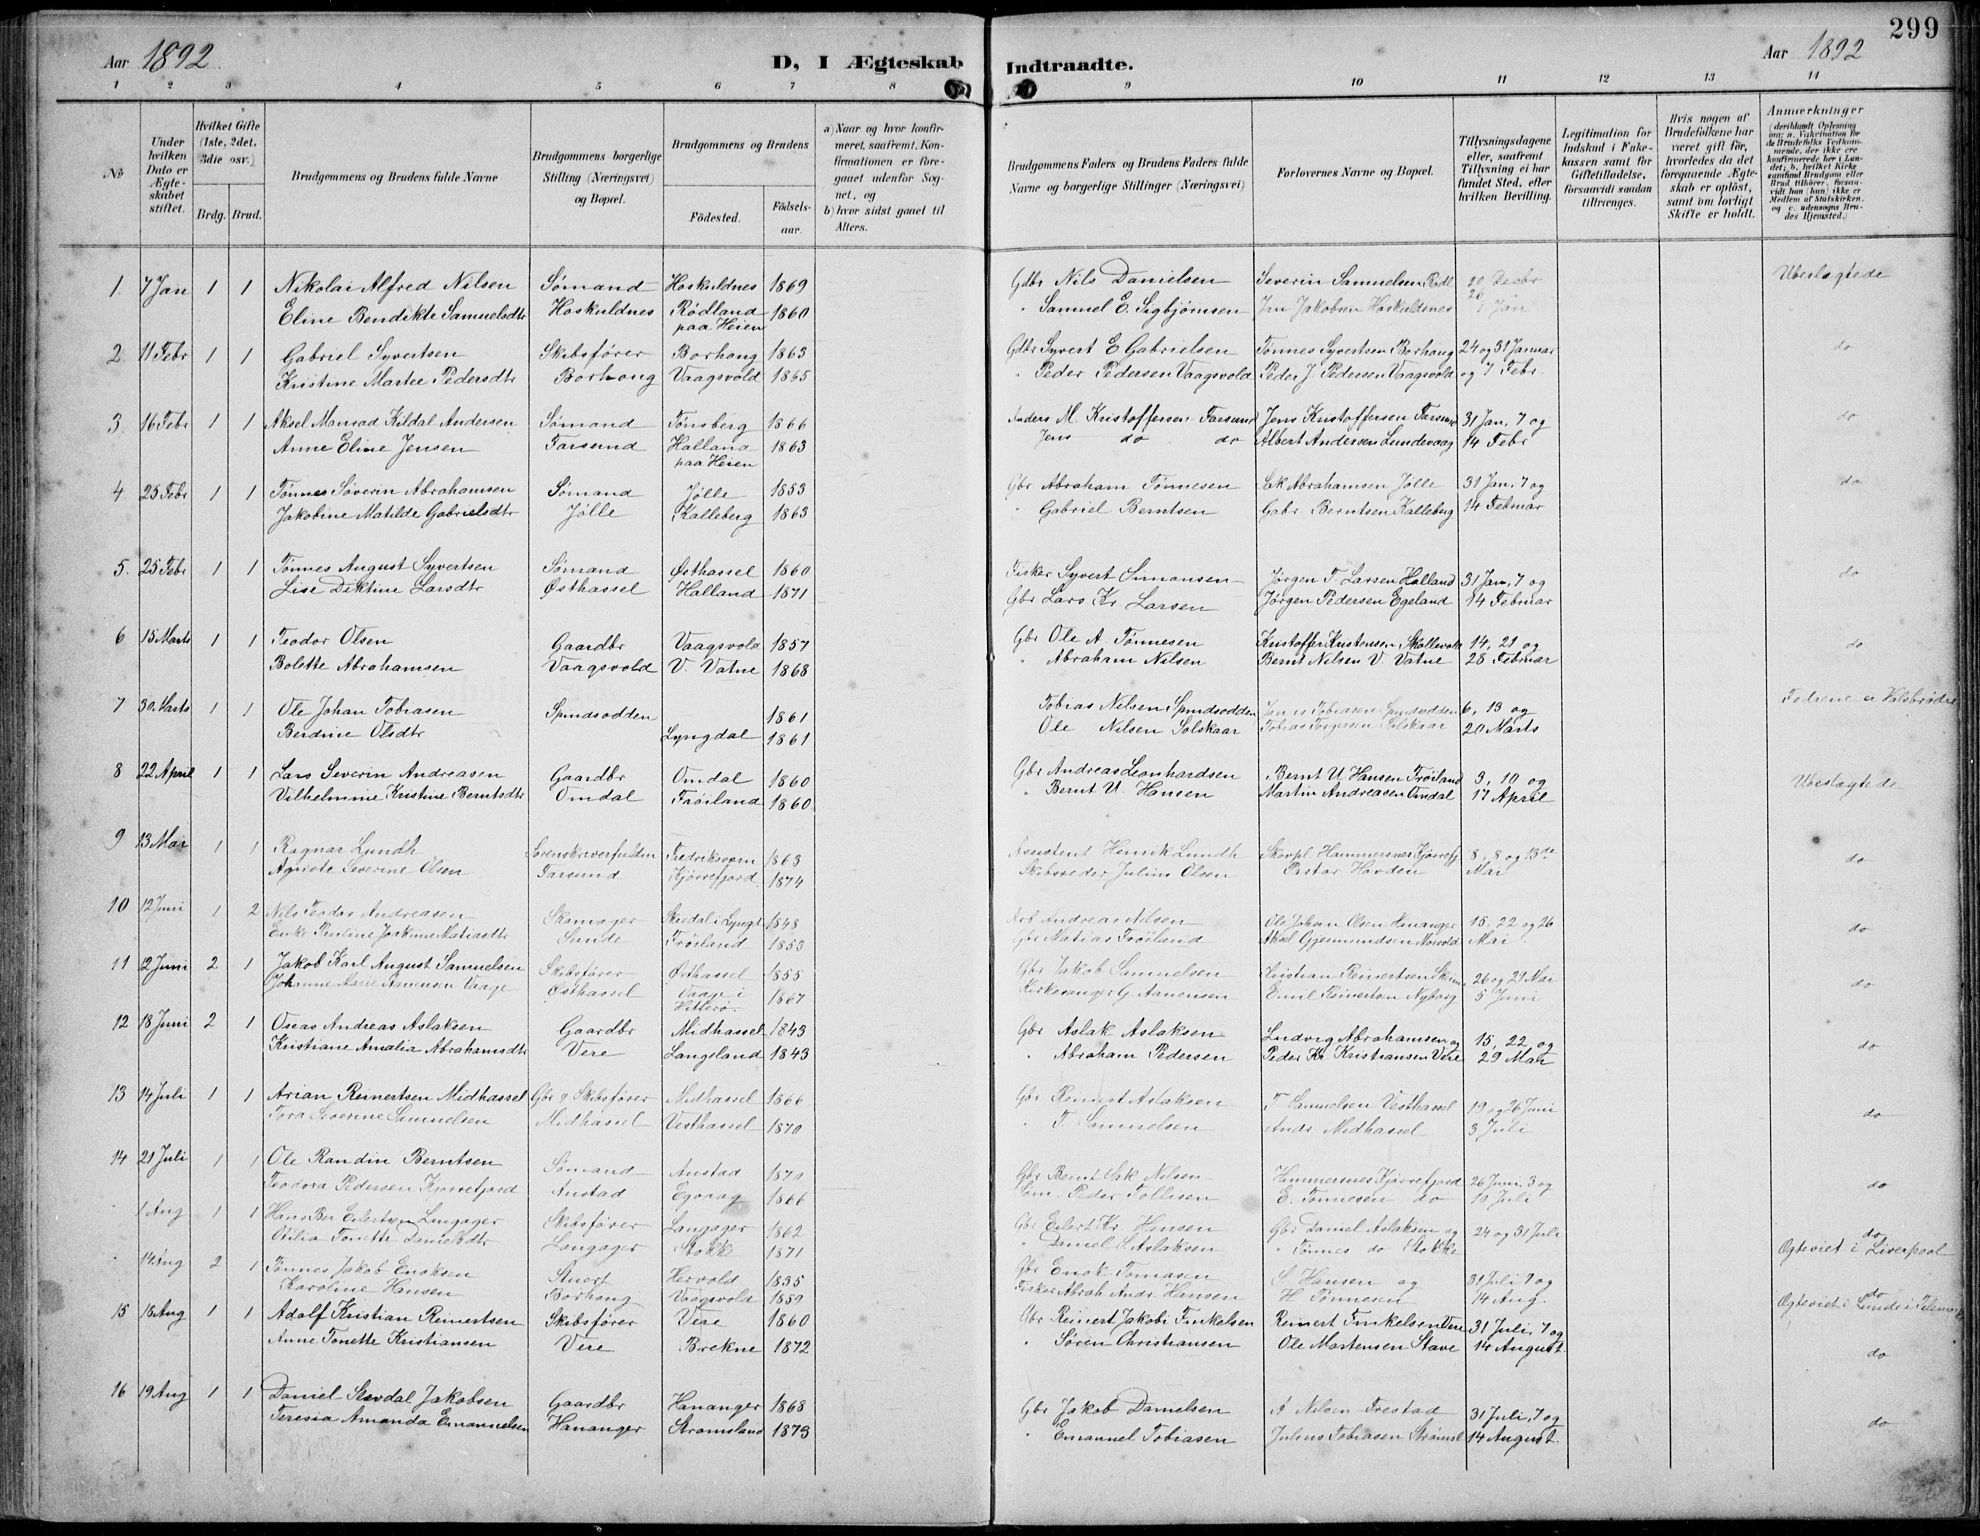 299
Aar 1892
D, I Ægteskab Indtraadte.
Aar 1892
1 2 3 4 5 6 7 8 9 10 11 12 13 14
No
Under hvilken Dato er Ægteskabet stiftet.
Hvilket Gifte (1ste, 2det, 3die osv.)
Brdg. Brud.
Brudgommens og Brudens fulde Navne
Brudgommens borgerlige Stilling (Næringsvei) og Bopæl.
Brudgommens og Brudens
Fødested. Fødselsaar.
a) Naar og hvor konfirmeret, saafremt Konfirmationen er foregaaet udenfor Sognet, og
b) hvor sidst gaaet til Alters.
Brudgommens Faders og Brudens Faders fulde Navne og borgerlige Stillinger (Næringsvei)
Forlovernes Navne og Bopæl.
Tillysningsdagene eller, saafremt Tillysning ei har fundet Sted, efter hvilken Bevilling.
Legitimation for Indskud i Enkekassen samt for Giftetilladelse, forsaavidt saadan tiltrænges.
Hvis nogen af Brudefolkene har været gift før, hvorledes da det foregaaende Ægteskab er opløst, samt om lovligt Skifte er holdt.
Anmærkninger
(deriblandt Oplysning om: a. Vakcination for de Brudefolks Vedkommende, der ikke ere konfirmerede her i Landet; b. hvilket Kirkesamfund Brudgom eller Brud tilhører, forsaavidt han (hun) ikke er Medlem af Statskirken, og c. udensogns Brudes Hjemsted.)
1. 7 Jan 1 1 Nikolai Alfred Nilsen Sømand Hoskuldnes 1869 Gdbr Nils Danielsen Severin Samuelsen Rødl 20 Decbr Ubeslægtede
Eline Bendikte Samuelsdtr Hoskuldnes Rødland paa Heien 1860 " Samuel E. Sigbjørnsen Jan Jakobsen Hoskuldsnes Jan
2. 11 Febr 1 1 Gabriel Syvertsen Skibsfører Borhaug 1863 Gdbr Syvert E Gabrielsen Tønnes Syvertsen Borhaug 24 og 31 Januar do
Kristine Marte Pedersdtr Borhaug Vaagsvold 1865 " Peder Pedersen Vaagsvold Peder J Pedersen Vaagsvold og 7 Febr.
3. 16 Febr 1 1 Aksel Manrad Kildal Andersen Sømand Tønsberg 1866 Anders M. Kristoffersen Farsund Jens Kristoffersen Farsund 31 Jan, 7 og do
Anne Eline Jensen Farsund Halland paa Heien 1863 Jens do do Albert Andersen Lundevaag 14 Febr
4 25 Febr 1 1 Tønnes Søverin Abrahamsen Sømand Jølle 1853 Gbr Abraham Tønnesen Sak Abrahamsen Jølle 31 Jan, 7 og do
Jakobine Matilde Gabrielsdtr Jølle Kalleberg 1863 " Gabriel Berntsen Gabr. Berntsen Kalleberg 14 Februar
5. 25 Febr 1 1 Tønnes August Syvertsen Sømand Østhassel 1860 Fisker Syvert Simonsen Jørgen T. Larsen Halland 31 Jan, 7 og do
Lise Diktine Larsdtr Østhassel Halland 1871 Gbr Lars Kr Larsen Jørgen Pedersen Egeland 14 Februar
6 15 Marts 1 1 Teodor Olsen Gaardbr Vaagsvold 1857 Gbr Ole A. Tønnesen Kristoffer Kristensen Skollevold 14, 21 og do
Bolette Abrahamsen Vaagsvold V. Vatne 1868 " Abraham Nilsen Bernt Nilsen V. Vatne 28 Februar
7 30 Marts 1 1 Ole Johan Tobiasen Spindsodden 1861 Tobias Nilsen Spindsodden Tobiasen Spindsodden 6, 13 og
Berdine Olsdtr Lyngdal 1861 Ole Nilsen Solskaar Tobias Torgersen Solskaar 20 Marts
8 22 April 1 1 Lars Severin Andreasen Gaardbr Omdal 1860 Gbr Andreas Leonhardsen Bernt U Hansen Frøiland 3, 10 og Ubeslægtede
Vilhelmine Kristine Berntsdtr Omdal Frøiland 1860 " Bernt U. Hansen Martin Andreasen Omdal 17 April
9 13 Mai 1 1 Ragnar Lundh Sorenskriverfuldm Fredriksværn 1863 Assistent Henrik Lundh Hammersnes Kjørrefj 8, 8 og 13de do
Agnete Severine Olsen Farsund Kjørrefjord 1874 Skibsreder Julius Olsen Pastor Hovden Mai
10 12 Juni 1 2 Nils Teodor Andreasen Skomager Skredal i Lyngd 1848 Arb Andreas Nilsen Ole Johan Olsen Hananger 15, 22 og 26 do
Enke Pauline Joakime Matiasdtr Sunde Frøiland 1853 Gbr Matias Frøiland Aksel Gjermundsen Mosvold Mai
11 12 Juni 2 1 Jakob Karl August Samuelsen Skibsfører Østhassel 1855 Gbr Jakob Samuelsen Kristian Reinertsen 26 og 29 Mai do
Johanne Marie Aanensen Vaage Østhassel Vaage i Hitterø 1867 Kirkesanger G. Aanensen Emil Reinertsen Nyborg 5 Juni
12 18 Juni 2 1 Oseas Andreas Aslaksen Gaardbr Midhassel 1843 Gbr Aslak Aslaksen Ludvig Abrahamsen og 15, 22, og do
Kristiane Amalia Abrahamsdtr Vere Langeland 1843 " Abraham Pedersen Peder Kr Kristiansen Vere 29 Mai
13 14 Juli 1 1 Arian Reinertsen Midhassel Gbr og Skibsfører Midhassel 1866 Gbr Reinert Aslaksen T. Samuelsen Vesthassel 19 og 26 Juni do
Tora Severine Samuelsen Midhassel Vesthassel 1870 " T. Samuelsen Andr Midhassel 3 Juli
14 21 Juli 1 1 Ole Randin Berntsen Sømand Austad 1870 Gbr Bernt Sak Nilsen Hammersnes Kjørrefjord 26 Juni, 3 og do
Teodora Pedersen Kjørrefjord Austad Egvaag 1866 Peder Tollisen E. Tønnesen do 10 Juli
1 Aug 1 1 Hans Ber Eilertsen Langager Skibsfører Langager 1862 Gbr Eilert Kr. Hansen Gbr Daniel Aslaksen og 24 og 31 Juli do
Otilia Tonette Danielsdtr Langager Stokke 1871 " Daniel S Aslaksen " Tønnes do Stokke Ogteviet i Liverpool
" 14 Aug 2 1 Tønnes Jakob Enoksen Stuert Hervold 1835 Gbr Enok Tomasen S. Hansen og 31 Juli 7 og do
Karoline Hansen Borhaug Vaagsvold 1859 Fisker Abrah Andr. Hansen H Tønnesen 14 Aug. Ogteviet i Sunde i Telemark
15 18 Aug 1 1 Adolf Kristian Reinertsen Skibsfører Vere 1860 Gbr Reinert Jakobi Finkelsen Reinert Finkelsen Vere 31 Juli, 7 og do
Anne Tonette Kristiansen Vere Brekne 1872 " Søren Christiansen Ole Martensen Stave 14 August
16 19 Aug 1 1 Daniel Stendal Jakobsen Gaardbr Hananger 1868 Gbr Jakob Danielsen A Nilsen Frestad 31 Juli, 7 og do
Teresia Amanda Emanuelsen Hananger Strømsland 1873 " Emanuel Tobiasen Julius Tobiasen Strømsl 14 August.